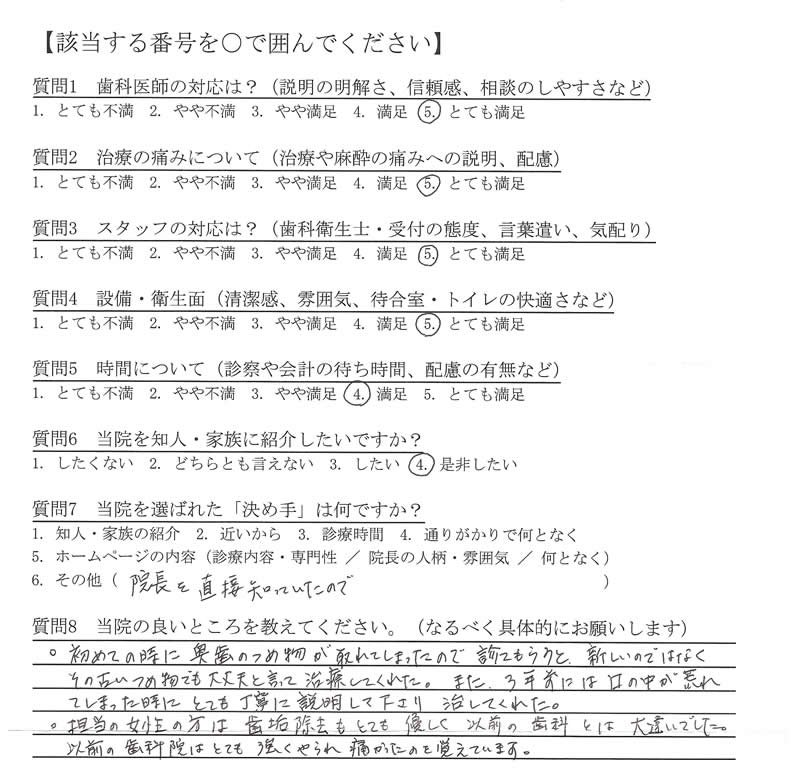 【該当する番号を〇で囲んでください】
質問1 歯科医師の対応は？（説明の明解さ、信頼感、相談のしやすさなど）
1. とても不満 2. やや不満 3. やや満足 4. 満足 5. とても満足
質問2 治療の痛みについて（治療や麻酔の痛みへの説明、配慮）
1. とても不満 2. やや不満 3. やや満足 4. 満足 5. とても満足
質問3 スタッフの対応は？（歯科衛生士・受付の態度、言葉遣い、気配り）
1. とても不満 2. やや不満 3. やや満足 4. 満足 5. とても満足
質問4 設備・衛生面（清潔感、雰囲気、待合室・トイレの快適さなど）
1. とても不満 2. やや不満 3. やや満足 4. 満足 5. とても満足
質問5 時間について（診察や会計の待ち時間、配慮の有無など）
1. とても不満 2. やや不満 3. やや満足 4. 満足 5. とても満足
質問6 当院を知人・家族に紹介したいですか？
1. したくない 2. どちらとも言えない 3. したい 4. 是非したい
質問7 当院を選ばれた「決め手」は何ですか？
1. 知人・家族の紹介 2. 近いから 3. 診療時間 4. 通りがかりで何となく
5. ホームページの内容（診療内容・専門性 ／ 院長の人柄・雰囲気 ／ 何となく）
6. その他（ 院長を直接知っていたので ）
質問8 当院の良いところを教えてください。（なるべく具体的にお願いします）
。初めての時に奥歯のつめ物が取れてしまったので診てもらうと、新しいのではなく
その古いつめ物でも大丈夫と言って治療してくれた。また、3年前には口の中が荒れ
てしまった時にとても丁寧に説明して下さり治してくれた。
。担当の女性の方は歯垢除去もとても優しく以前の歯科とは大違いでした。
以前の歯科院はとても強くやられ痛かったのを覚えています。